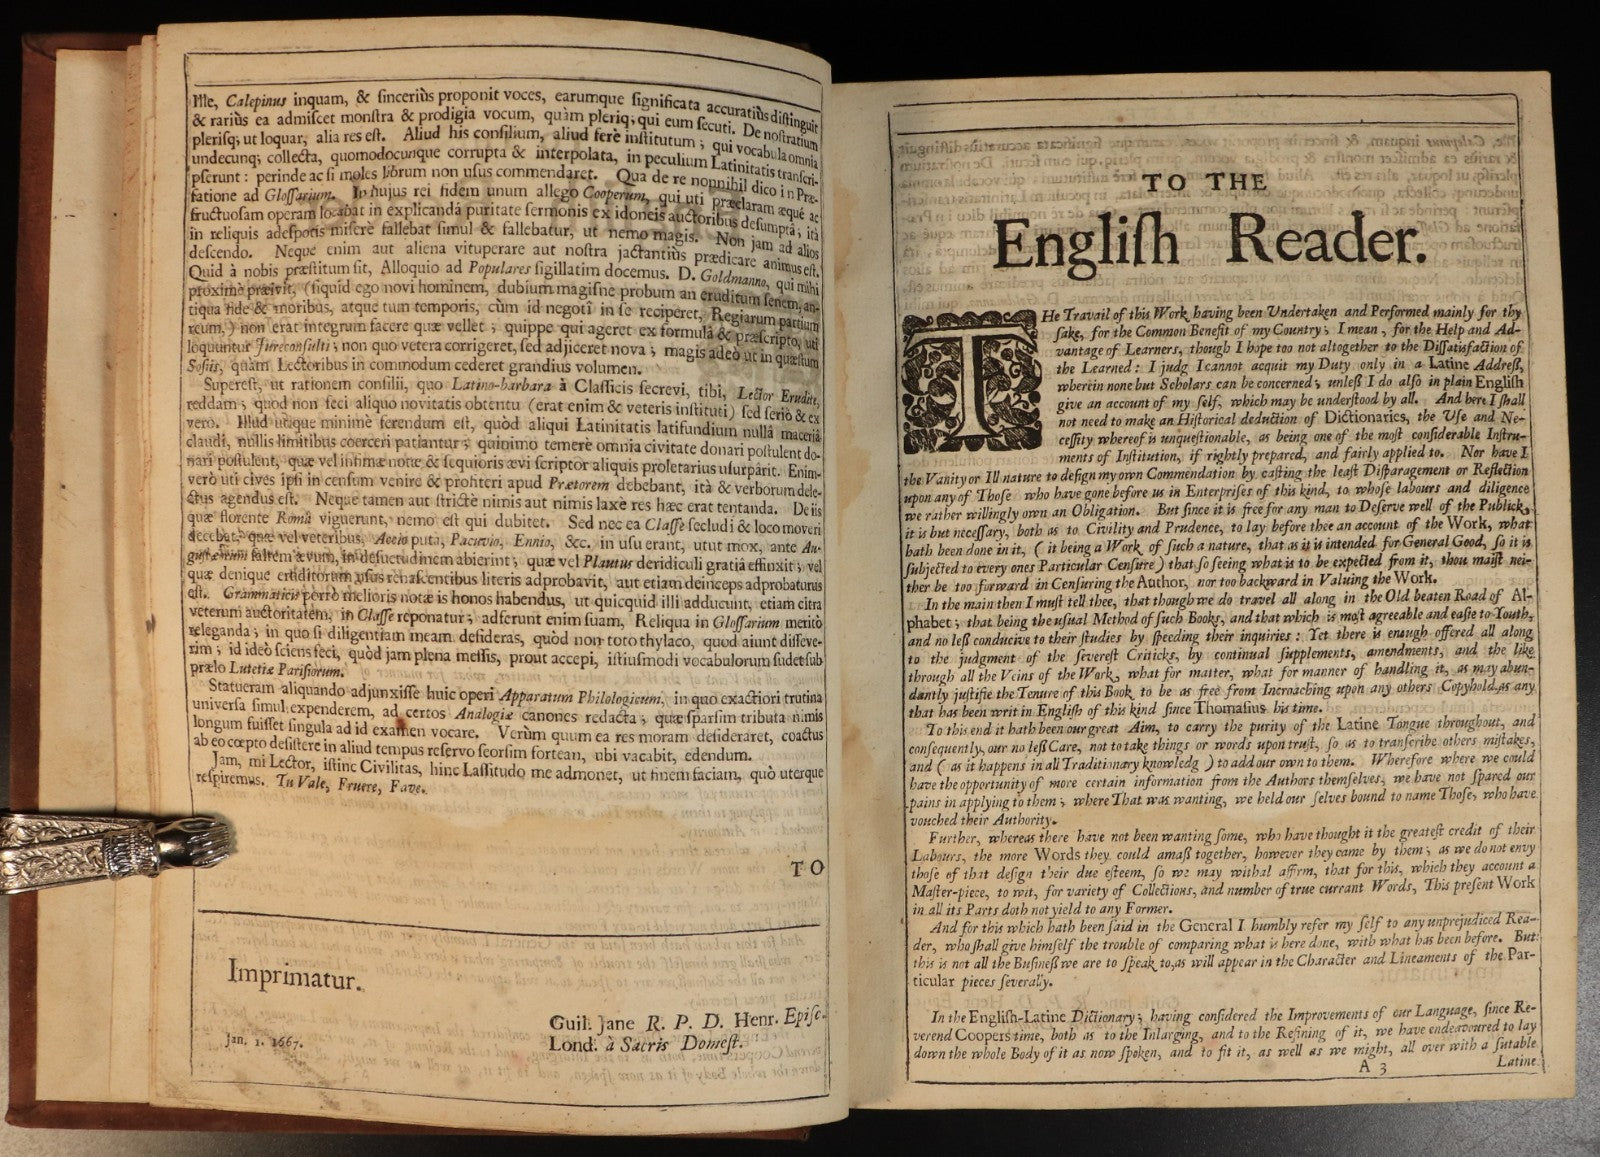 Ille, Calepinus inquam, & ſinceriùs proponit voces, earumque ſignificata accuratiùs diſtinguit
& rariùs ea admiſcet monſtra & prodigia vocum, quàm pleriq; qui eum ſecuti. De noſtratium
pleriſq; ut loquar, alia res eſt. Aliud his conſilium, aliud ferè inſtitutum; qui vocabula omnia
undecunq; collecta, quomodocunque corrupta & interpolata, in peculium Latinitatis tranſcri-
pſerunt: perinde ac ſi moles librum non uſus commendaret. Qua de re nonnihil dico in Præ-
fatione ad Gloſſarium. In hujus rei fidem unum allego Cooperum, qui uti præclaram æquè ac
fructuoſam operam locabat in explicandâ puritate ſermonis ex idoneis auctoribus deſumptâ; ità
in reliquis adeſpotis miſerè fallebat ſimul & fallebatur, ut nemo magis. Non jam ad alios
deſcendo. Neque enim aut aliena vituperare aut noſtra jactantiùs prædicare animus eſt.
Quid à nobis præſtitum ſit, Alloquio ad Populares ſigillatim docemus. D. Goldmanno, qui mihi
proximè præivit, (ſiquid ego novi hominem, dubium magiſne probum an eruditum ſenem, an-
tiqua fide & moribus, atque tum temporis, cùm id negotî in ſe reciperet, Regiarum partium
reum,) non erat integrum facere quæ vellet; quippe qui ageret ex formulâ & præſcripto, uti
loquuntur Jureconſulti; non quo vetera corrigeret, ſed adjiceret nova; magis adeò ut in quæſtum
Soſiis, quàm Lectoribus in commodum cederet grandius volumen.
Supereſt, ut rationem conſilii, quo Latino-barbara à Claſſicis ſecrevi, tibi, Lector Erudite,
reddam; quod non feci aliquo novitatis obtentu (erat enim & veteris inſtituti) ſed ſeriò & ex
vero. Illud utique minimè ferendum eſt, quòd aliqui Latinitatis latifundium nullâ maceriâ
claudi, nullis limitibus coerceri patiantur; quinimo temerè omnia civitate donari poſtulent do-
nari poſtulent, quæ vel infimæ notæ & ſequioris ævi ſcriptor aliquis proletarius uſurpârit. Enim-
verò uti cives ipſi in cenſum venire & profiteri apud Prætorem debebant, ità & verborum dele-
ctus agendus eſt. Neque tamen aut ſtrictè nimis aut nimis laxè res hæc erat tentanda. De iis
quæ florente Româ viguerunt, nemo eſt qui dubitet. Sed nec ea Claſſe ſecludi & loco moveri
decebat, quæ vel veteribus, Accio puta, Pacuvio, Ennio, &c. in uſu erant, utut mox, ante Au-
guſtæum ſaltem ævum, in deſuetudinem abierint; quæ vel Plautus deridiculi gratiâ effinxit; vel
quæ denique eruditorum uſus renaſcentibus literis adprobavit, aut etiam deinceps adprobaturus
eſt. Grammaticis porrò melioris notæ is honos habendus, ut quicquid illi adducunt, etiam citra
veterum auctoritatem, in Claſſe reponatur; adferunt enim ſuam, Reliqua in Gloſſarium meritò
releganda; in quo ſi diligentiam meam deſideras, quòd non toto thylaco, quod aiunt diſſeve-
rim; id ideò ſciens feci, quòd jam plena meſſis, prout accepi, iſtiuſmodi vocabulorum ſudet ſub
prælo Lutetiæ Pariſiorum.
Statueram aliquando adjunxiſſe huic operi Apparatum Philologicum, in quo exactiori trutina
univerſa ſimul expenderem, ad certos Analogiæ canones redacta; quæ ſparſim tributa nimis
longum fuiſſet ſingula ad id examen vocare. Verùm quum ea res moram deſideraret, coactus
ab eo cœpto deſiſtere in aliud tempus reſervo ſeorſim fortean, ubi vacabit, edendum.
Jam, mi Lector, iſtinc Civilitas, hinc Laſſitudo me admonet, ut finem faciam, quò uterque
reſpiremus. Tu Vale, Fruere, Fave.
TO
Imprimatur.
Jan. 1. 1667.
Guil. Jane R. P. D. Henr. Epiſc.
Lond. à Sacris Domeſt.
TO THE
Engliſh Reader.
THe Travail of this Work having been Undertaken and Performed mainly for thy
ſake, for the Common Benefit of my Country; I mean, for the Help and Ad-
vantage of Learners, though I hope too not altogether to the Diſſatisfaction of
the Learned: I judg I cannot acquit my Duty only in a Latine Addreſs,
wherein none but Scholars can be concerned; unleſs I do alſo in plain Engliſh
give an account of my ſelf, which may be underſtood by all. And here I ſhall
not need to make an Hiſtorical deduction of Dictionaries, the Uſe and Ne-
ceſſity whereof is unqueſtionable, as being one of the moſt conſiderable Inſtru-
ments of Inſtitution, if rightly prepared, and fairly applied to. Nor have I
the Vanity or Ill nature to deſign my own Commendation by caſting the leaſt Diſparagement or Reflection
upon any of Thoſe who have gone before us in Enterpriſes of this kind, to whoſe labours and diligence
we rather willingly own an Obligation. But ſince it is free for any man to Deſerve well of the Publick,
it is but neceſſary, both as to Civility and Prudence, to lay before thee an account of the Work, what
hath been done in it, (it being a Work of ſuch a nature, that as it is intended for General Good, ſo it is
ſubjected to every ones Particular Cenſure) that ſo ſeeing what is to be expected from it, thou maiſt nei-
ther be too forward in Cenſuring the Author, nor too backward in Valuing the Work.
In the main then I muſt tell thee, that though we do travel all along in the Old beaten Road of Al-
phabet; that being the uſual Method of ſuch Books, and that which is moſt agreeable and eaſie to Youth,
and no leſs conducive to their ſtudies by ſpeeding their inquiries: Yet there is enough offered all along
to the judgment of the ſevereſt Criticks, by continual ſupplements, amendments, and the like
through all the Veins of the Work, what for matter, what for manner of handling it, as may abun-
dantly juſtifie the Tenure of this Book to be as free from Incroaching upon any others Copyhold as any
that has been writ in Engliſh of this kind ſince Thomaſius his time.
To this end it hath been our great Aim, to carry the purity of the Latine Tongue throughout, and
conſequently, our no leſs Care, not to take things or words upon truſt, ſo as to tranſcribe others miſtakes,
and (as it happens in all Traditionary knowledg) to add our own to them. Wherefore where we could
have the opportunity of more certain information from the Authors themſelves, we have not ſpared our
pains in applying to them; where That was wanting, we held our ſelves bound to name Thoſe, who have
vouched their Authority.
Further, whereas there have not been wanting ſome, who have thought it the greateſt credit of their
Labours, the more Words they could amaſs together, however they came by them; as we do not envy
thoſe of that deſign their due eſteem, ſo we may withal affirm, that for this, which they account a
Maſter-piece, to wit, for variety of Collections, and number of true currant Words, This preſent Work
in all its Parts doth not yield to any Former.
And for this which hath been ſaid in the General I humbly refer my ſelf to any unprejudiced Rea-
der, who ſhall give himſelf the trouble of comparing what is here done, with what has been before. But
this is not all the Buſineſs we are to ſpeak to, as will appear in the Character and Lineaments of the Par-
ticular pieces ſeverally.
In the Engliſh-Latine Dictionary; having conſidered the Improvements of our Language, ſince Re-
verend Coopers time, both as to the Inlarging, and to the Refining of it, we have endeavoured to lay
down the whole Body of it as now ſpoken, and to fit it, as well as we might, all over with a ſutable
A 3
Latine